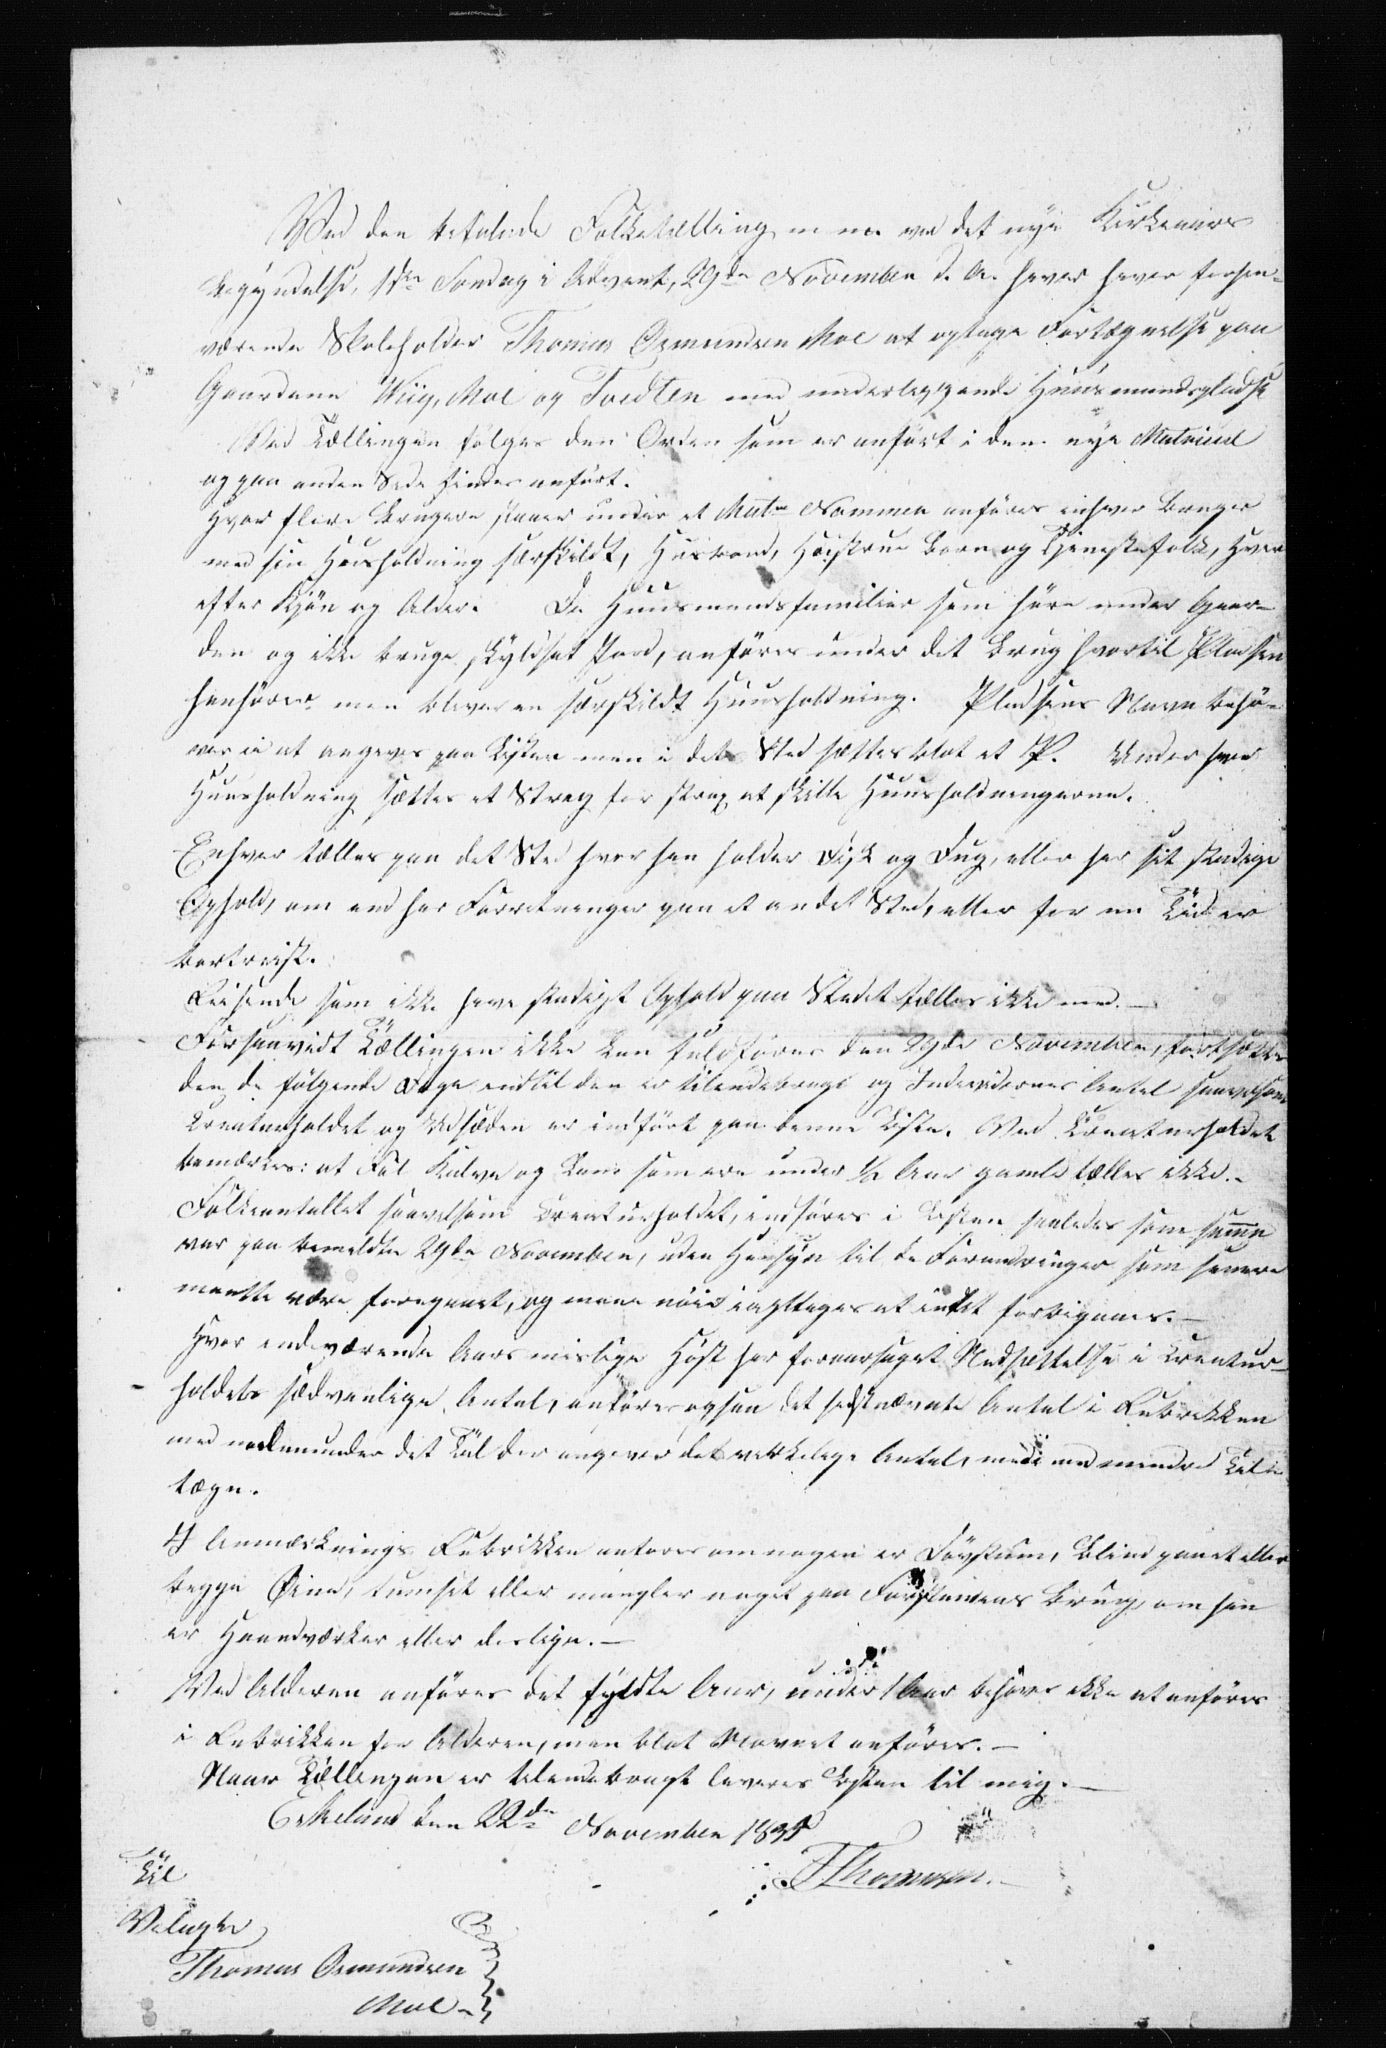 Ved den befalede Folketælling m m ved det nye Kirkeaars
Begyndelse, 1ste Søndag i Advent, 29de November d. A. haver
værende Skoleholder Thomas Osmundsen Moe at optage Fortegnelse paa
Gaardene Wiig, Moe og Tvedten med underliggende Huusmandspladse
Ved Tællingen følges den Orden som er anført i den nye Matricul
og paa anden Side findes anført.
Hvor flere Brugere staaer under et Matr Nommer anføres enhver Bruger
med sin Huusholdning særskildt, Husbond, Børn og Tjenestefolk, hver
efter Kjøn og Alder. De Huusmandsfamilier som høre under Gaar-
den og ikke bruge skyldsat Jord, anføres under det Brug hvortil Pladsen
henhører men bliver en særskildt Huusholdning. Pladsens Navn behø-
ves ei at angives paa Listen men i dets Sted sættes blot et P. Under hver
Huusholdning sættes et Streg for strax at skille Huusholdningerne.
Enhver tælles paa det Sted hvor han holder Disk og Dug, eller har sit stadige
Ophold, om end har Forretninger paa et andet Sted, eller for en Tid er
bortreist.
Reisende som ikke have stadigt Ophold paa Stedet tælles ikke med.—
Forsaavidt Tællingen ikke kan fuldføres den 29de November, fortsættes
den de følgende Dage indtil den er tilendebragt og Individernes Antal saavelsom
Creaturholdet og Udsæden er indført paa denne Liste. Ved Creaturholdet
bemærkes: at Føl Kalve og Lam som ere under ½ Aar gamle tælles ikke.-
Folkeantallet saavelsom Creaturholdet, indføres i Listen saaledes som samme
var paa bemeldte 29de November, uden Hensyn til de Forandringer som senere
maatte være foregaaet, og maae nøie iagttages at intet forbigaaes.—
Hvor indeværende Aars mislige Høst har foraarsaget Nedsættelse i Creatur-
holdets sædvanlige Antal, anføres ogsaa det sidstnævnte Antal i Rubrikken
med nedenunder det Tal der angiver det virkelige Antal, med mindre Tal-
tegn.
I Anmærknings Rubrikken anføres om nogen er Døvstum, Blind paa et eller
begge Øine, tumset eller mangler noget paa Forstandens Brug, om han
er Haandværker eller deslige.—
Ved Alderen anføres det fyldte Aar, under 1 Aar behøves ikke at anføres
i Rubrikken for Alderen, men blot Navnet anføres.—
Naar Tællingen er tilendebragt leveres Listen til mig.—
Eskeland den 22de November 1835
Thomsen.
Til
Velagte
Thomas Osmundsen
Moe